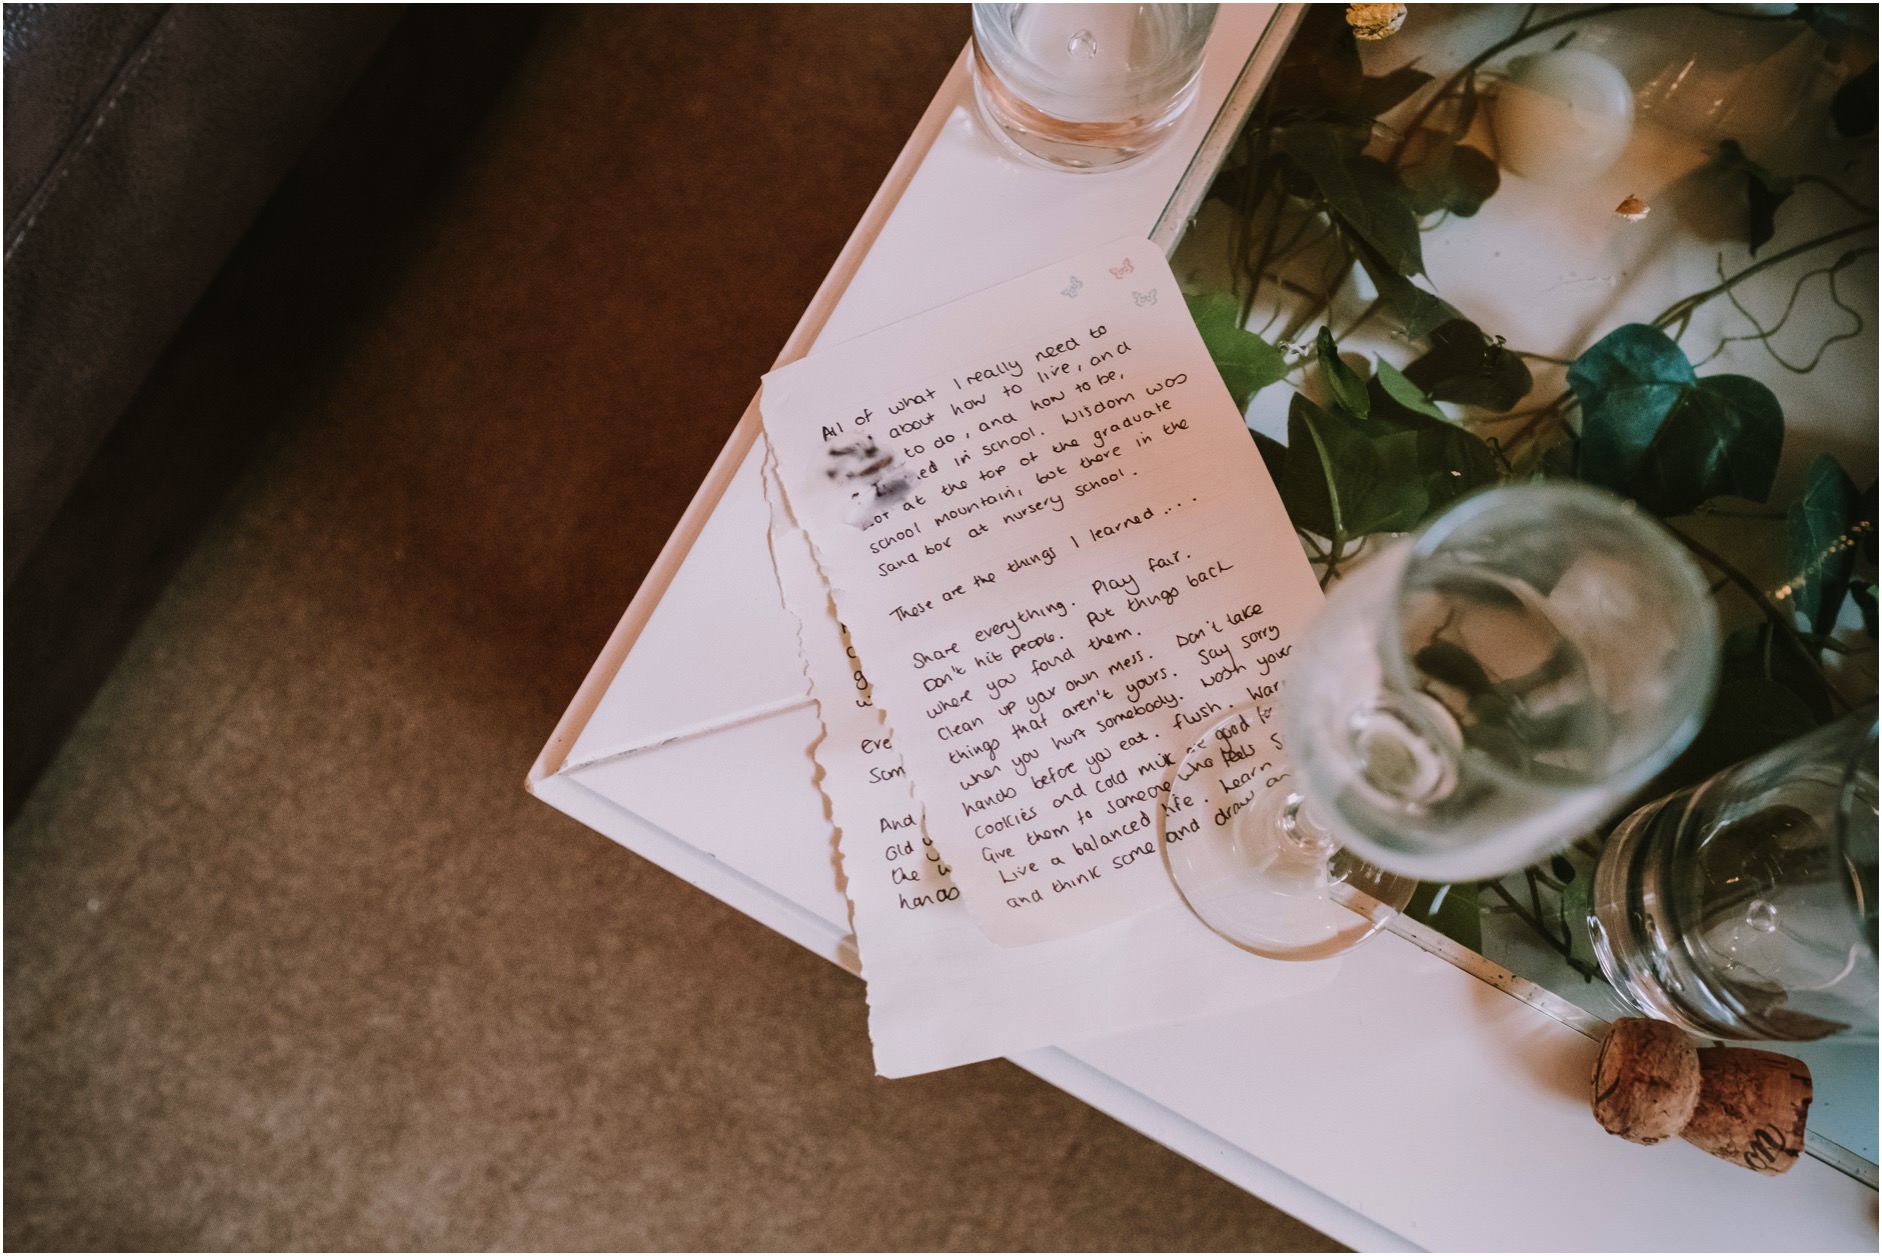 All of what I really need to
about how to live, and
to do, and how to be,
in school. Wisdom was
at the top of the graduate
school mountain, but there in the
sand box at nursery school.
These are the things I learned ....
Share everything. Play fair.
Don't hit people. Put things back
where you found them.
Clean up your own mess. Don't take
things that aren't yours. Say sorry
when you hurt somebody. Wash your
hands before you eat. flush. War
cookies and cold milk good fo
Give them to someone who feels s
Live a balanced life. Learn
and think some and draw an
Eve
Som
And
Old
the w
hands
on